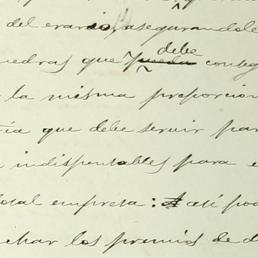 del erario, asegurandole
uedras que debe
la misma proporcion
que debe servir par
indispensables para e
total empresa: así pod
char los premios de d